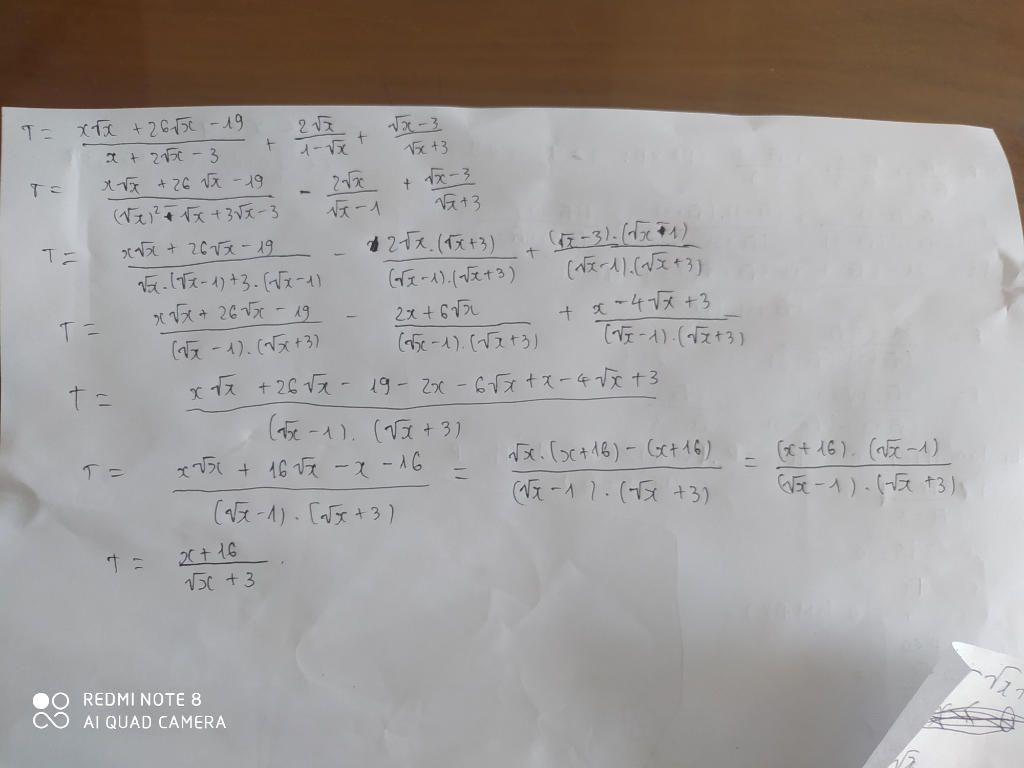 T = (x√x + 26√x - 19)/(x + 2√x - 3) + 2√x/(1-√x) + (√x-3)/(√x+3)
T = (x√x + 26√x - 19)/((√x)² - √x + 3√x - 3) - 2√x/(√x-1) + (√x-3)/(√x+3)
T = (x√x + 26√x - 19)/(√x.(√x-1)+3.(√x-1)) - 2√x.(√x+3)/((√x-1).(√x+3)) + (√x-3).(√x-1)/((√x-1).(√x+3))
T = (x√x + 26√x - 19)/((√x-1).(√x+3)) - (2x+6√x)/((√x-1).(√x+3)) + (x-4√x+3)/((√x-1).(√x+3))
T = (x√x + 26√x - 19 - 2x - 6√x + x - 4√x + 3)/((√x-1).(√x+3))
T = (x√x + 16√x - x - 16)/((√x-1).(√x+3)) = (√x.(x+16)-(x+16))/((√x-1).(√x+3)) = (x+16).(√x-1)/((√x-1).(√x+3))
T = (x+16)/(√x+3).
REDMI NOTE 8
AI QUAD CAMERA